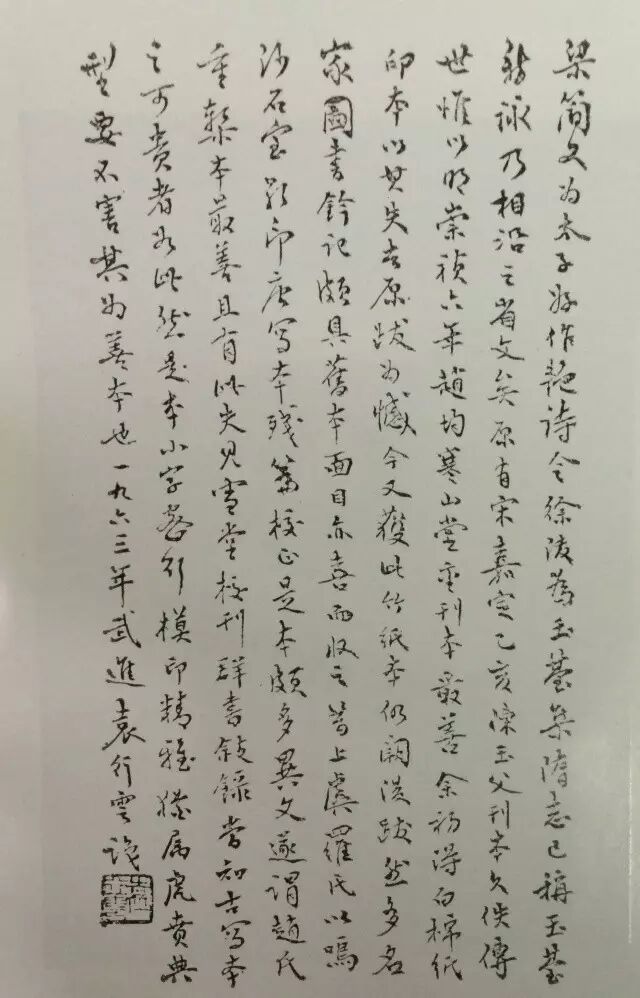 梁简文为太子好作艳诗令徐陵为玉台集隋志已稱玉台
新詠乃相沿之省文矣原有宋嘉定乙亥陳玉父刊本久佚傳
世惟以明崇禎六年趙均寒山堂重刊本最善余初得白棉纸
印本以其失去原跋为憾今又獲此竹纸本仍闕後跋然多名
家圖書鈐记颇具舊本面目亦喜而收之昔上虞羅氏以鳴
沙石室影印唐写本殘篇校正是本颇多異文遂谓趙氏
重槧本最善且有此失见雪堂校刊群書敍錄當知古写本
之可贵者如此然是本小字密行模印精雅猶属虎贲典
型要不害其为善本也一九六三年武進袁行雲識